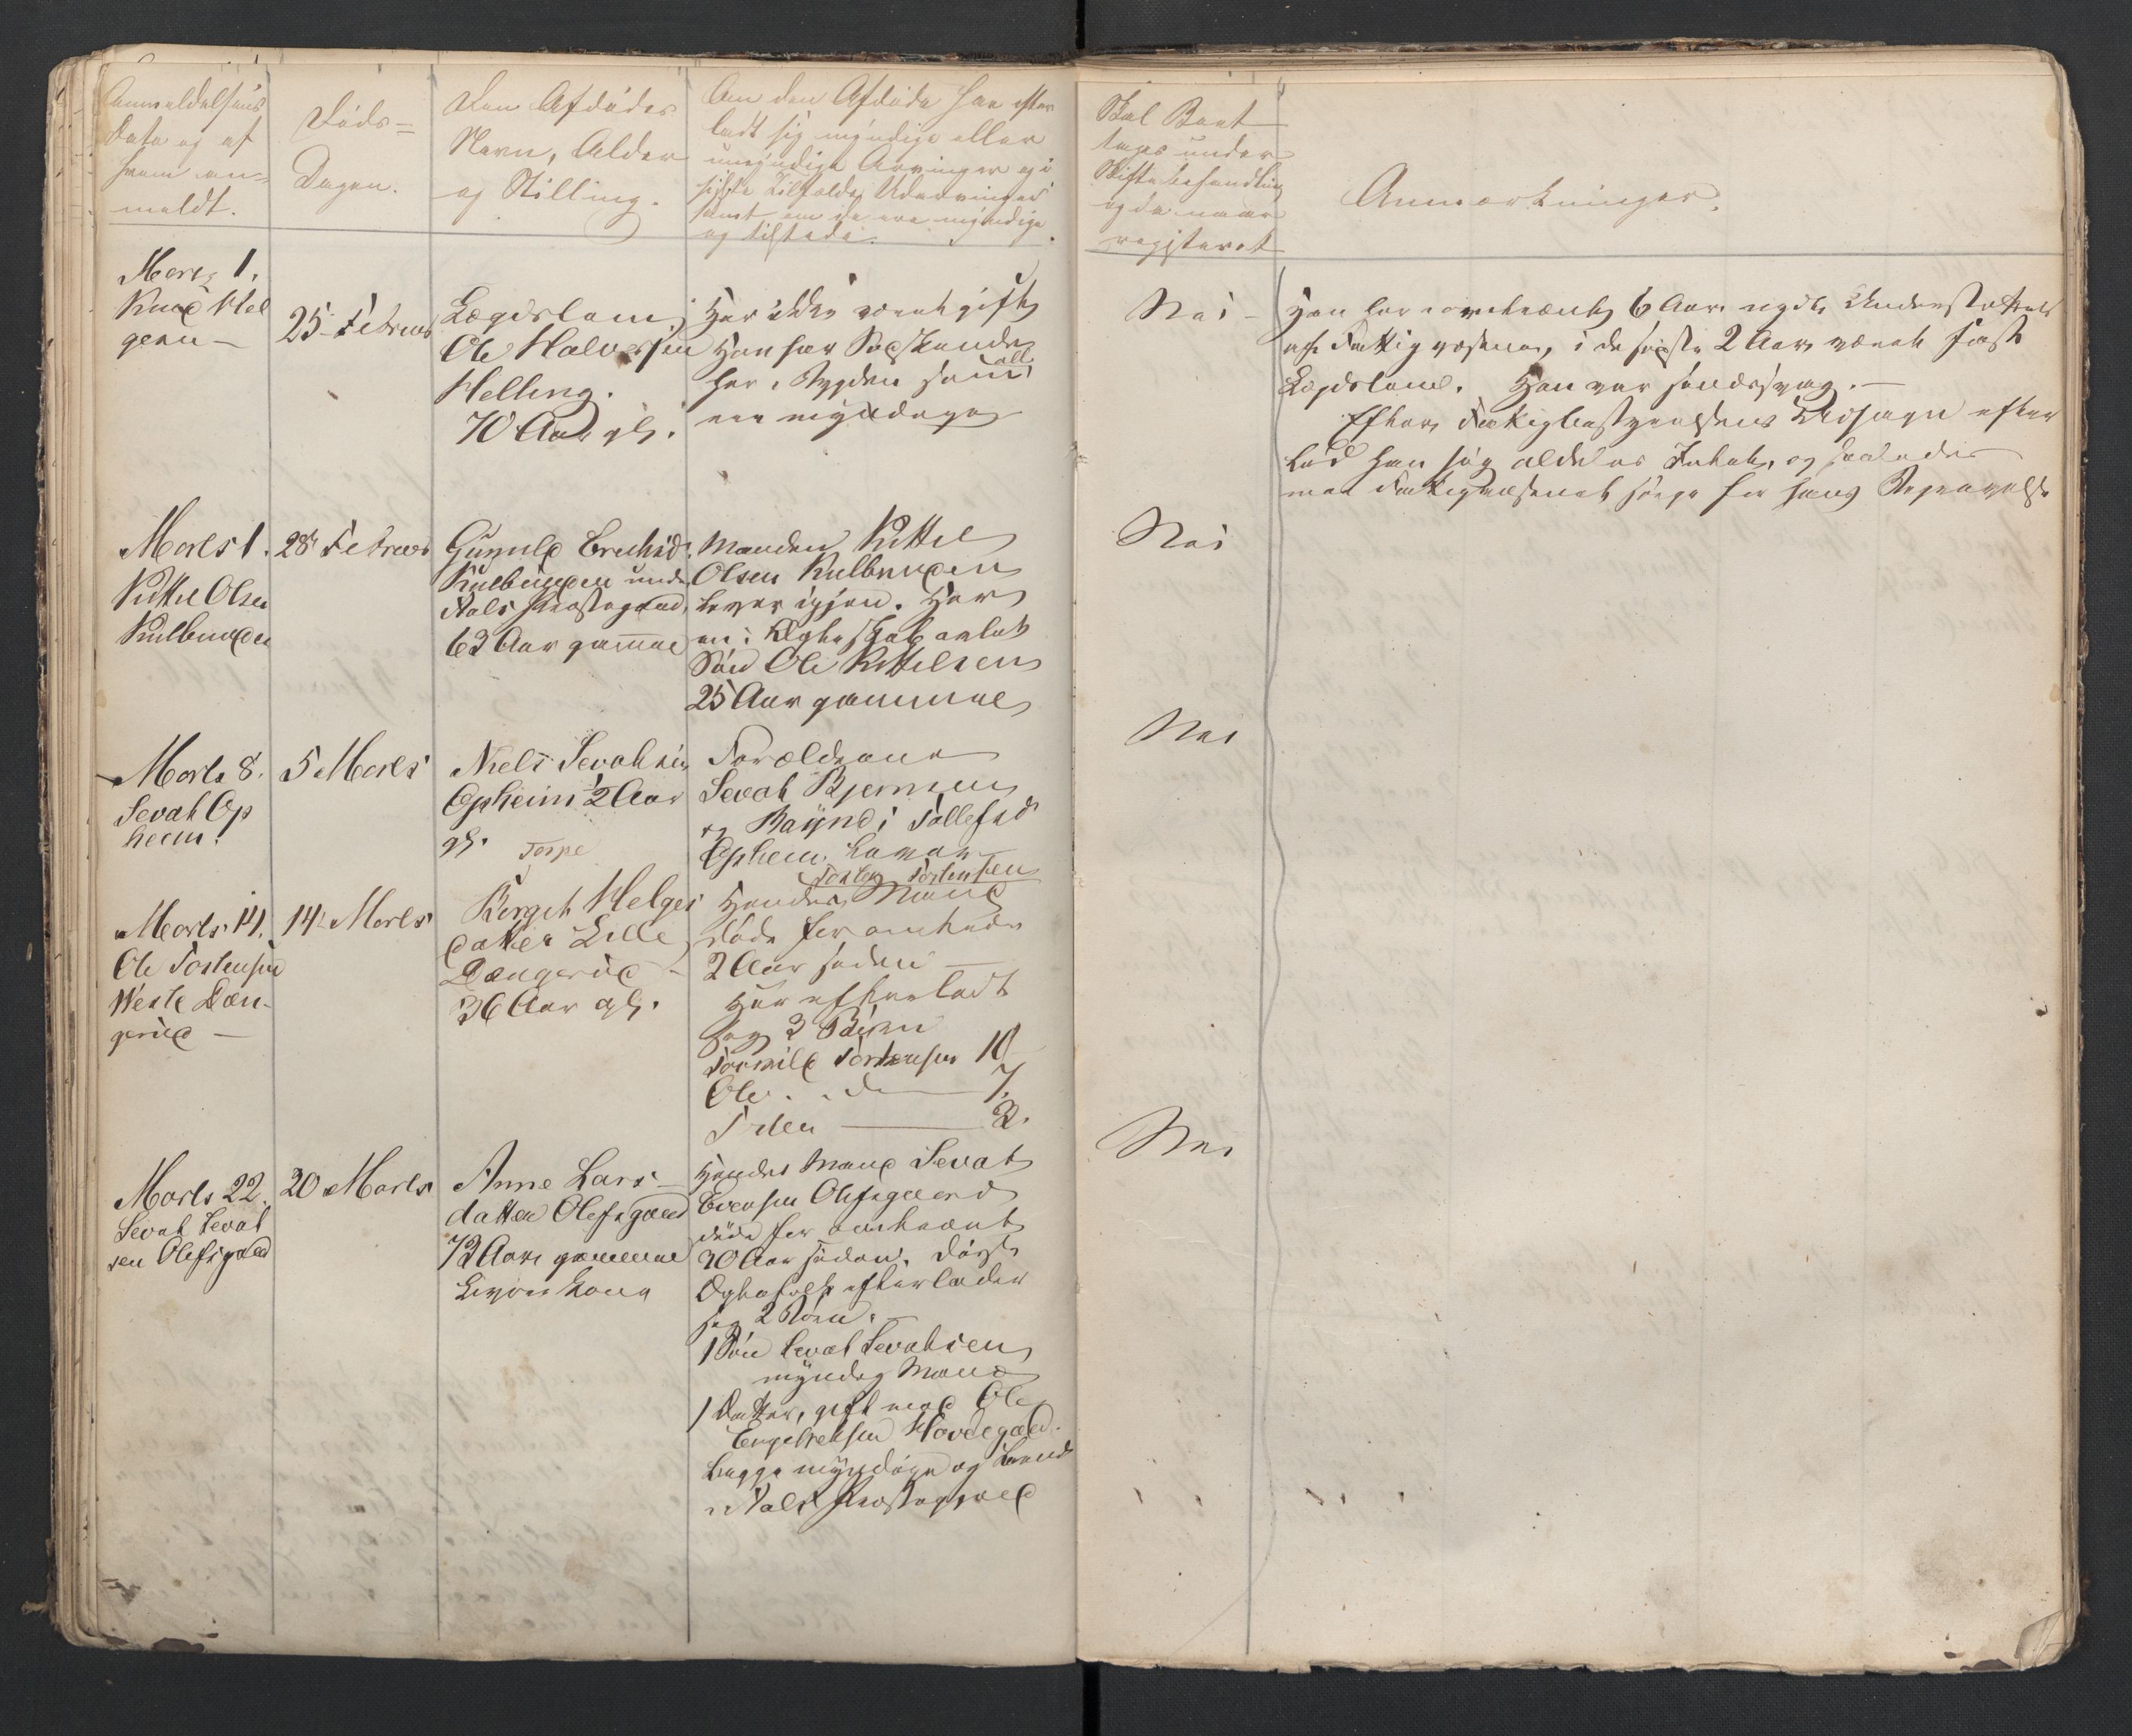 Anmeldelsens
Dato og af
hvem an-
meldt.
Døds-
Dagen.
Den Afdødes
Navn, Alder
og Stilling.
Om den Afdøde har efter
ladt sig myndige eller
umyndige Arvinger og i
sidste Tilfælde, Udarvinger
samt om de ere myndige
og tilstede.
Skal Boet
tages under
Skiftebehandling
og da naar
registeret
Anmærkninger.
Marts 1.
Knud Hel
geen
25 Februar
Lægdslem
Ole Halvorsen
Helling.
70 Aar gl.
Har ikke været gift
Han har Sødskende
her i Bygden som alle
ere myndige
Nei
Han har omtrent 6 Aar nydt Understøttelse
af Fattigvæsenet, i de sidste 2 Aar været fast
Lægdslem. Han var sindssvag.
Efter Fattigbestyrelsens Udsagn efter
lod han sig aldeles Intet, og saaledes
maa Fattigvæsenet sørge for hans Begravelse
Marts 1.
Kittel Olsen
Kulbunden
28 Februar
Gunild Erichsd.
Kulbunden under
Aals Præstegaard
63 Aar gammel
Manden Kittel
Olsen Kulbunden
Lever igjen. Har
en i Ægteskab avlet
Søn Ole Kittelsen
25 Aar gammel
Nei
Marts 8.
Sevat Op
heim.
5 Marts
Niels Sevatsen
Opheim 1/2 Aar
gl. Torpe
Forældrene
Sevat Bjørnsen
og Bøynd i Tollefsd
Opheim Lever
Nei
Marts 14.
Ole Tostensen
Westre Dæn-
gerud
14 Marts
Birgit Helges
datter Lille
Dængerud
36 Aar gl.
Tosten Tostensen
Hendes Mand
døde for omtrent
2 Aar siden
Har efterladt
sig 3 Børn
Tormild Tostensen 10
Ole do 7.
Tosten 3.
Marts 22.
Sevat Sevat
sen Olefsgaard
20 Marts
Anne Lars-
datter Olefsgaard
72 Aar gammel
Livøreskone
Hendes Mand Sevat
Evensen Olefsgaard
døde for omtrent
30 Aar siden. Disse
Ægtefolk efterlader
sig 2 Børn.
1 Søn Sevat Sevatsen
myndig Mand
1 Datter, gift med Ole
Engebretsen Hovdegaard.
begge myndige og boende
i Aals Præstegjæld
Nei